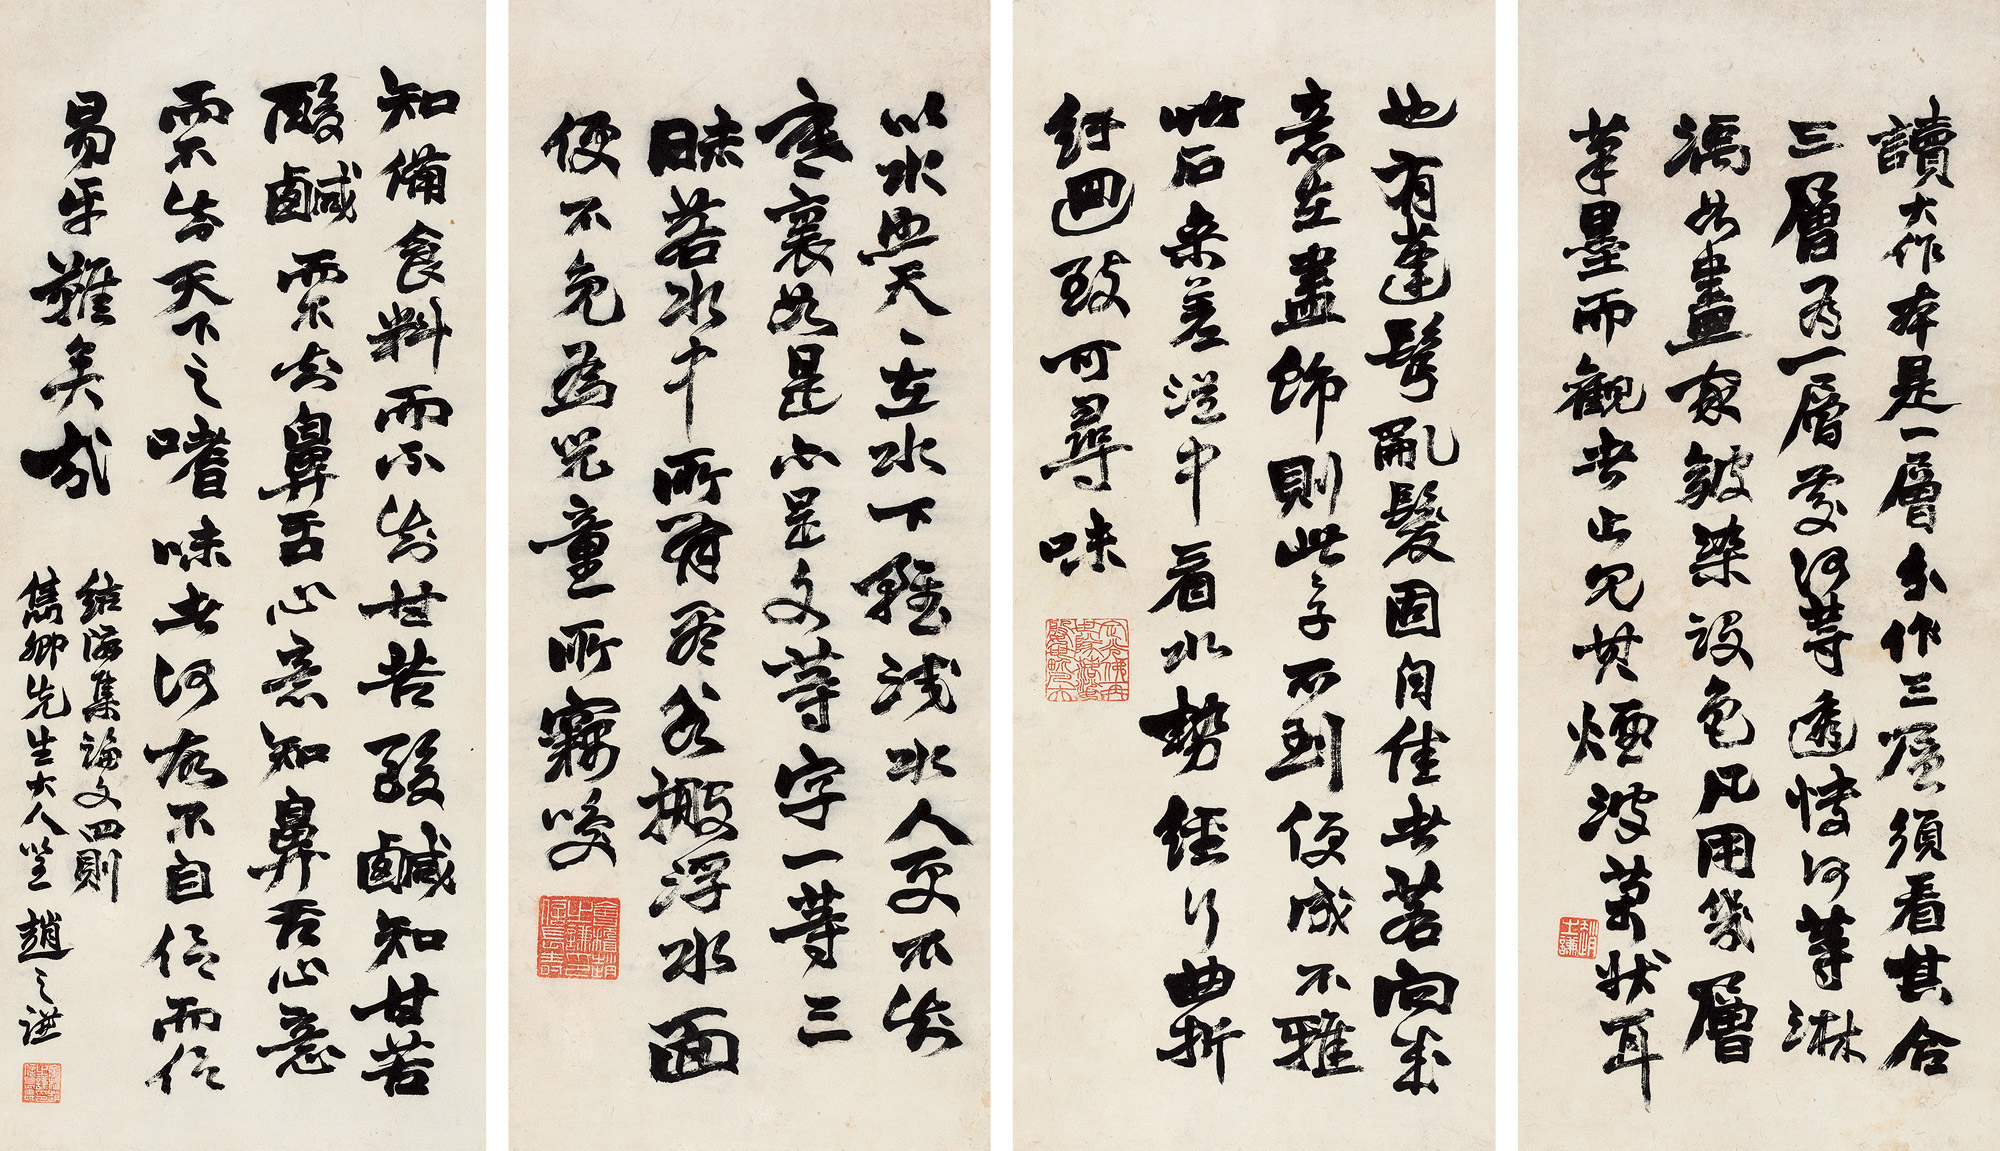 讀大作本是一層分作三層須看其合
三層為一層處何等透快何等淋
漓如畫家皴染設色凡用幾層
筆墨而觀者止見其煙波萬狀耳
也有蓬鬢亂髮固自佳者若向來
意在盡飾則些子不到便成不雅
此石參差溪中看水勢經行曲折
紆迴致可尋味
以水照天〻在水下雖淺水人更不
褰裳如是亦是文等字一等三
昧若水中所有盡搬浮水面
便不免為兒童所竊笑
知備食料而不知甘苦酸鹹知甘苦
酸鹹而不知鼻舌心意知鼻舌心意
而不知天下之嗜味者何在不自信而信
易牙難矣哉
結隣集論文四則
儁卿先生大人正 趙之謙